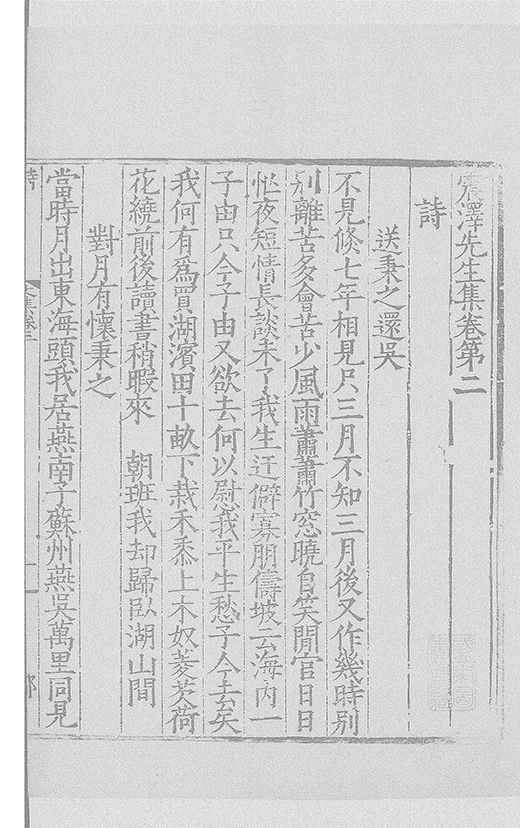 震澤先生集卷第二
詩
送秉之還吳
不見倏七年相見只三月不知三月後又作幾時別
別離苦多會苦少風雨蕭蕭竹窓曉自笑閒官日日
忙夜短情長談未了我生迂僻寡朋儔坡云海内一
子由只今子由又欲去何以慰我平生愁子今去矣
我何有爲買湖濱田十畝下栽禾黍上木奴菱芡荷
花繞前後讀書稍暇來 朝班我却歸臥湖山間
對月有懷秉之
當時月出東海頭我居燕南子蘇州燕吳萬里同見